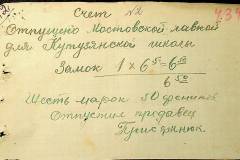 Счет №2
Отпущено Мостовской лавкой
для Кутузянской школы
Замок 1 x 6⁵⁰ = 6⁵⁰
6⁵⁰
Шесть марок 50 фенигов
Отпустил продавец